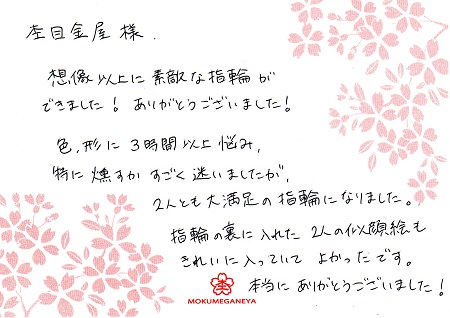 杢目金屋 様.
想像以上に素敵な指輪が
できました! ありがとうございました!
色,形に 3時間以上悩み,
特に 燻すか すごく 迷いましたが,
2人とも大満足の指輪になりました。
指輪の裏に入れた 2人の似顔絵も
きれいに入っていて よかったです。
本当に ありがとうございました!
MOKUMEGANEYA